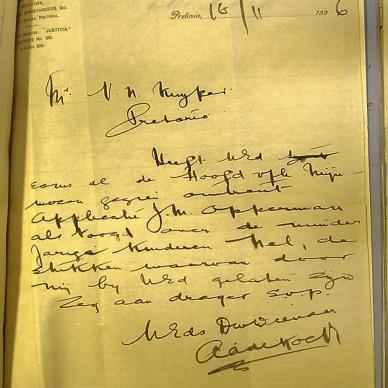 CONVEYANCERS, &c.
PRETORIA.
"JUSTITIA"
Pretoria, 16/11 1896
Mr. N. N. Kuyper
Pretoria
Heeft UEd
eens al de Hoofd v/h
wezen omtrent
Applicatie J. M. Opperman
als voogd over de minder
jarige kinderen Nel, de
stukken waarvan door
mij by UEd gelaten zyn
Zeg aan drager s.v.p.
UEds Dw Dienaar